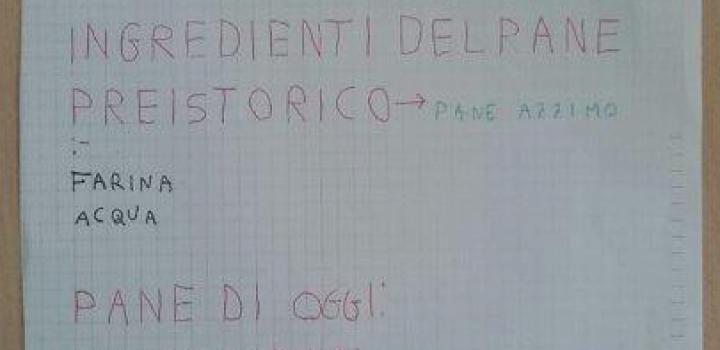 INGREDIENTI DEL PANE
PREISTORICO → PANE AZZIMO
:-
FARINA
ACQUA
PANE DI OGGI: